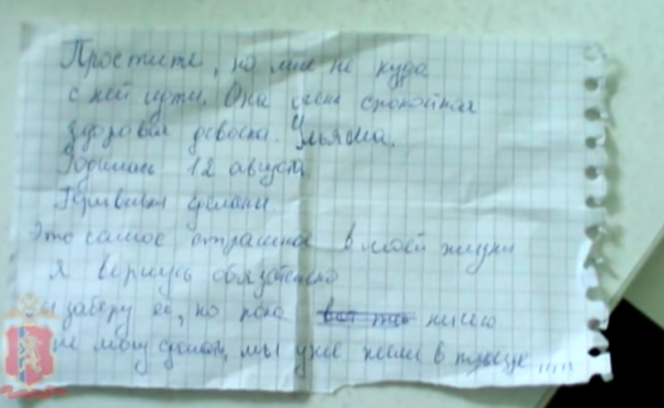 Простите, но мне не куда
с ней идти. Она очень спокойная
здоровая девочка. Ульяна.
Родилась 12 августа
Прививки сделаны
Это самое страшное в моей жизни
Я вернусь обязательно
и заберу её, но пока ничего
не могу сделать, мы уже жили в